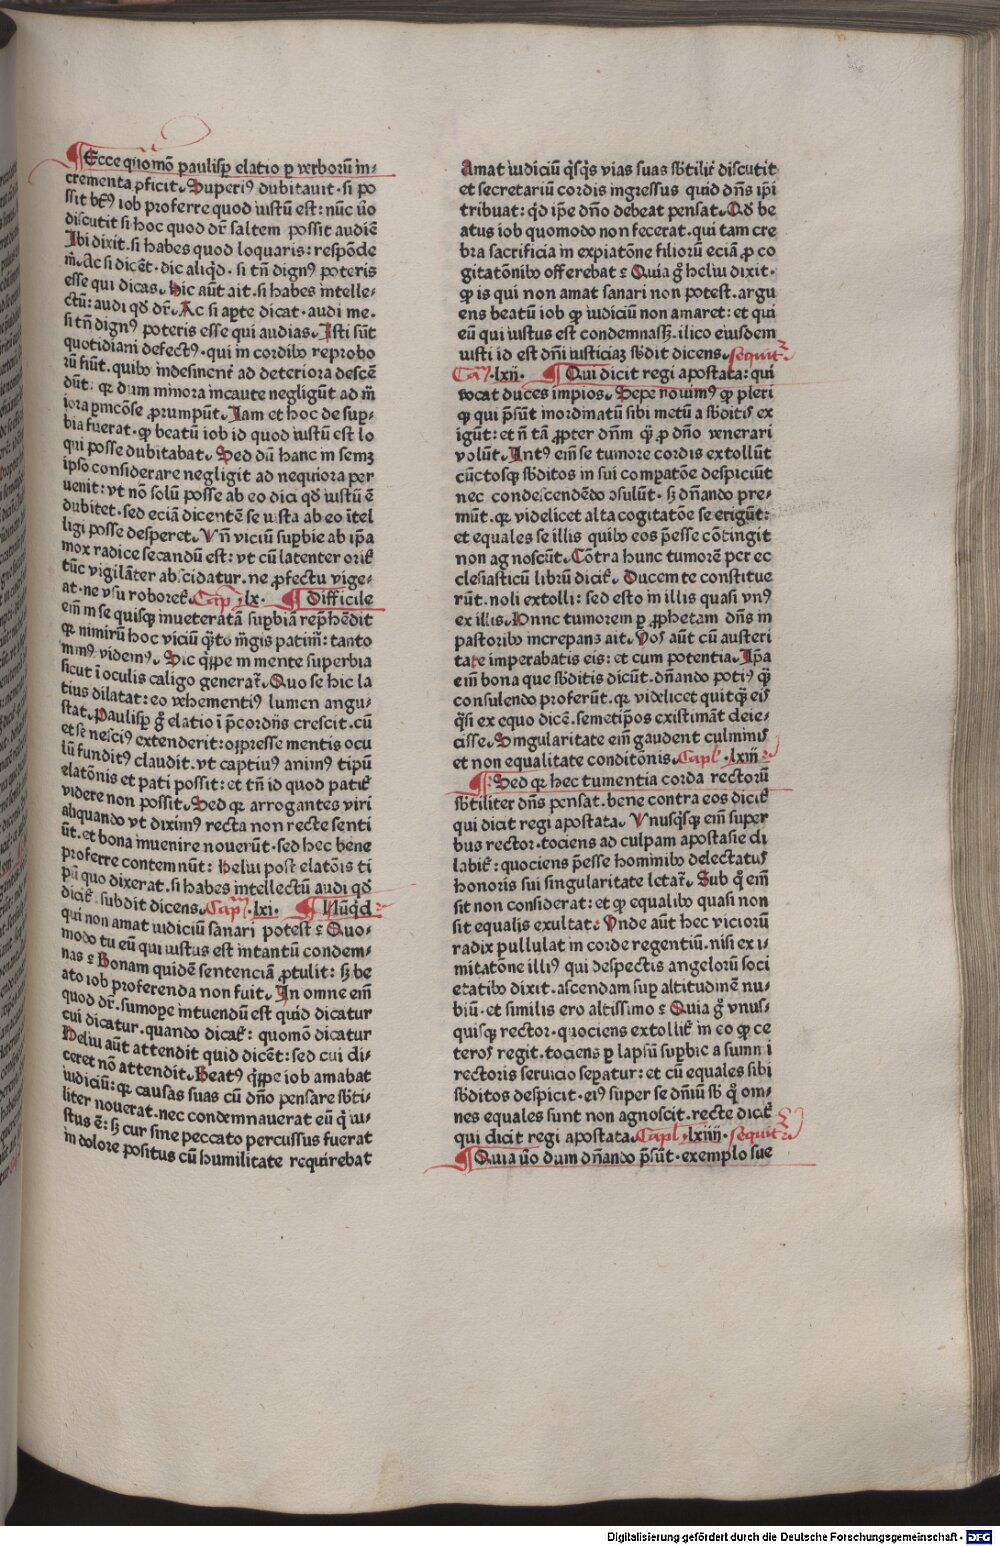 ¶Ecce quomo᷈ paulisꝑ elatio ꝑ verborū in-
crementa ꝓficit. Superiꝰ dubitauit. si po
ssit btꝰ iob proferre quod iustū est: nūc v̊o
discutit si hoc quod dr̄ saltem possit audiē
Ibi dixit. si habes quod loquaris: respōde
m̄. Ac si dicēt. dic aliqd. si tn̄ dignꝰ poteris
esse qui dicas. Hic aūt ait. si habes intelle-
ctū: audi qd dr̄. Ac si aꝑte dicat. audi me.
si tn̄ dignꝰ poteris esse qui audias. Isti sūt
quotidiani defectꝰ. qui in cordibꝰ reprobo
rū fiūt. quibꝰ indesinent᷑ ad deteriora descē
dūt. qꝛ dum minora incaute negligūt ad m̄
iora ꝑmcōse ꝓrumpūt. Iam et hoc de sup-
bia fuerat. ꝙ beatū iob id quod iustū est lo
qui posse dubitabat. Sed dū hanc in semꝫ
ipso considerare negligit ad nequiora per
uenit: vt nō solū posse ab eo dici qd iustū ē
dubitet. sed eciā dicentē se iusta ab eo ītel
ligi posse desperet. Vn̄ viciū supbie ab ip̄a
mox radice secandū est: vt cū latenter orit᷑
tūc vigilāter abscidatur. ne ꝓfectu vige-
at. ne vsu roboret᷑. Cap. lx. ¶Difficile
em̄ in se quisqꝫ inueteratā supbiā rep̄hēdit
qꝛ nimirū hoc viciū q̄to m̄gis patim᷑: tanto
minꝰ videmꝰ. Sic qꝫpe in mente superbia
sicut ī oculis caligo generat᷑. Quo se hic la
tius dilatat: eo vehementiꝰ lumen angu-
stat. Paulisꝑ g̊ elatio ī p̄cordn̄s crescit. cū
et se nesciꝰ extenderit: oppresse mentis ocu
lū funditꝰ claudit. vt captiuꝰ animꝰ tipū
elatōnis et pati possit: et tn̄ id quod patit᷑
videre non possit. Sed qꝛ arrogantes viri
aliquando vt diximꝰ recta non recte senti
ūt. et bona inuenire nouerūt. sed hec bene
proferre contemnūt: Heliu post elatōis ti
pū quo dixerat. si habes intellectū audi qd
dicit᷑. subdit dicens. Cap. lxi. ¶Nūqd
qui non amat iudiciū sanari potest ? Quo-
modo tu eū qui iustus est intantū condem-
nas ? Bonam quidē sentenciā ꝓtulit: sꝫ be
ato iob proferenda non fuit. In omne em̄
quod dr̄. sumoꝑe intuendū est quid dicatur
cui dicatur. quando dicat᷑: quomō dicatur
Heliu aūt attendit quid dicēt: sed cui di-
ceret nō attendit. Beatꝰ qꝫpe iob amabat
iudiciū: qꝛ causas suas cū dn̄o pensare sbti-
liter nouerat. nec condemnauerat eū q̊ iu-
stus ē: sꝫ cur sine peccato percussus fuerat
in dolore positus cū humilitate requirebat
Amat iudiciū qͥsqͥs vias suas sbtilit᷑ discutit
et secretariū cordis ingressus quid dn̄s ip̄i
tribuat: qd ip̄e dn̄o debeat pensat. Qd be
atus iob quomodo non fecerat. qui tam cre
bra sacrificia in expiatōne filiorū eciā ꝓ co
gitatōnibꝰ offerebat ? Quia g̊ heliu dixit.
ꝙ is qui non amat sanari non potest. argu
ens beatū iob ꝙ iudiciū non amaret: et qui
eū qui iustus est condemnasꝫ. ilico eiusdem
iusti id est dn̄i iusticiaꝫ sbdit dicens. sequit᷑
Cap. lxii. ¶Qui dicit regi apostata: qui
vocat duces impios. Sepe nouimꝰ ꝙ pleri
qꝫ qui p̄sūt inordinatū sibi metū a sbditis ex
igūt: et n̄ tā ꝓpter dn̄m qꝫ ꝓ dn̄o venerari
volūt. Intꝰ em̄ se tumore cordis extollūt
cūctosqꝫ sbditos in sui compatōe despiciūt
nec condescendēdo ꝯsulūt. sꝫ dn̄ando pre-
mūt. qꝛ videlicet alta cogitatōe se erigūt:
et equales se illis quibꝰ eos p̄esse cōtingit
non agnoscūt. Cōtra hunc tumorē per ec
clesiasticū librū dicit᷑. Ducem te constitue
rūt. noli extolli: sed esto in illis quasi vnꝰ
ex illis. Hunc tumorem ꝑ ꝓphetam dn̄s in
pastoribꝰ increpans ait. Vos aūt cū austeri
tate imperabatis eis: et cum potentia. Ip̄a
em̄ bona que sbditis dicūt. dn̄ando potiꝰ qꝫ
consulendo proferūt. qꝛ videlicet quitqꝫ eis
qͣsi ex equo dicē. semetip̄os existimāt deie-
cisse. Singularitate em̄ gaudent culminis
et non equalitate conditōnis. Capl. lxiii
¶Sed qꝛ hec tumentia corda rectorū
sbtiliter dn̄s pensat. bene contra eos dicit᷑
qui dicit regi apostata. Vnusqͥsqꝫ em̄ super
bus rector. tociens ad culpam apostasie di
labit᷑: quociens p̄esse hominibꝰ delectatus
honoris sui singularitate letat᷑. Sub q̊ em̄
sit non considerat: et ꝙ equalibꝰ quasi non
sit equalis exultat: Vnde aūt hec viciorū
radix pullulat in corde regentiū. nisi ex i-
mitatōne illiꝰ qui despectis angelorū soci
etatibꝰ dixit. ascendam sup altitudinē nu-
biū. et similis ero altissimo ? Quia g̊ vnus-
quisqꝫ rector. quociens extollit᷑ in eo ꝙ ce
teros regit. tociens ꝑ lapsū supbie a summi
rectoris seruicio seꝑatur: et cū equales sibi
sbditos despicit. eiꝰ super se dn̄iū sb q̊ om-
nes equales sunt non agnoscit. recte dicit᷑
qui dicit regi apostata. Capl. lxiiii. sequit᷑
¶Quia v̊o dum dn̄ando p̄sūt. exemplo sue
Digitalisierung gefördert durch die Deutsche Forschungsgemeinschaft - DFG